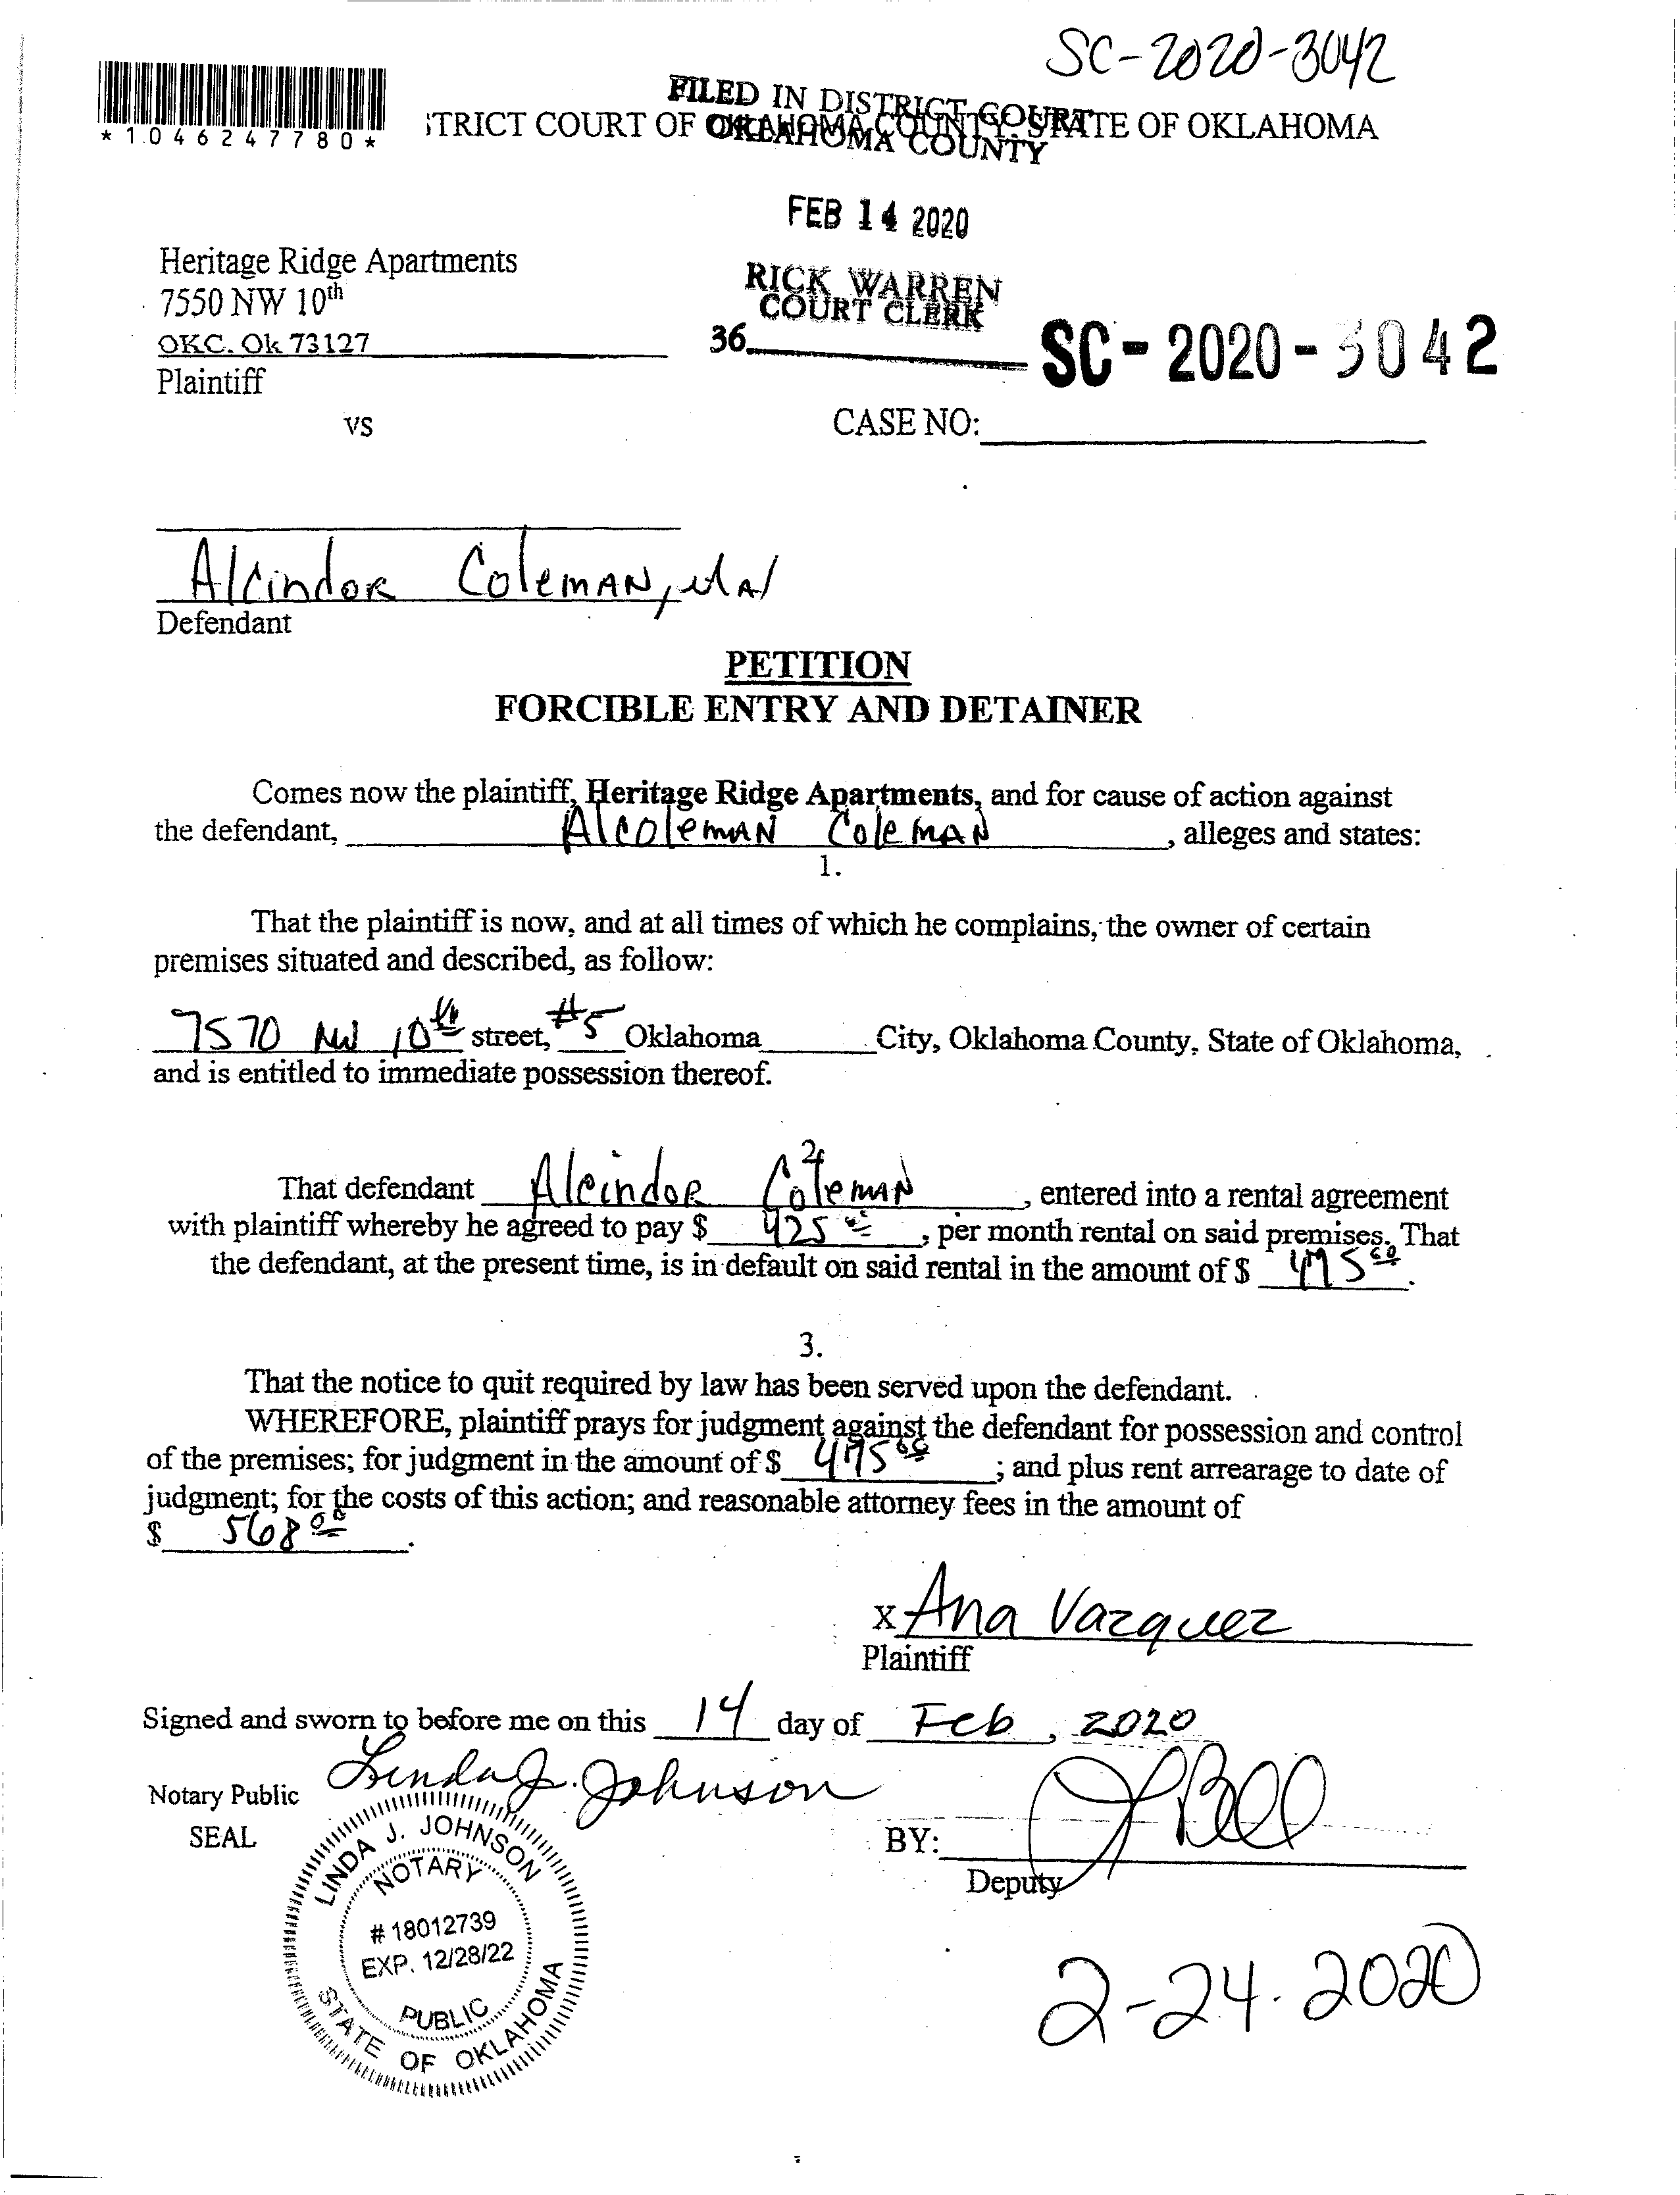 SC-2020-3042
*1046247780*
FILED IN DISTRICT COURT
OKLAHOMA COUNTY
TRICT COURT OF OKLAHOMA COUNTY, STATE OF OKLAHOMA
FEB 14 2020
Heritage Ridge Apartments
7550 NW 10th
OKC. Ok 73127
Plaintiff
RICK WARREN
COURT CLERK
36
SC-2020-3042
vs
CASE NO:
Alcindor Coleman,
Defendant
PETITION
FORCIBLE ENTRY AND DETAINER
Comes now the plaintiff, Heritage Ridge Apartments, and for cause of action against
the defendant, Alcoleman Coleman, alleges and states:
1.
That the plaintiff is now, and at all times of which he complains, the owner of certain
premises situated and described, as follow:
7570 NW 10th street, #5 Oklahoma City, Oklahoma County, State of Oklahoma,
and is entitled to immediate possession thereof.
2
That defendant Alcindor Coleman, entered into a rental agreement
with plaintiff whereby he agreed to pay $ 425 00, per month rental on said premises. That
the defendant, at the present time, is in default on said rental in the amount of $ 475 00.
3.
That the notice to quit required by law has been served upon the defendant.
WHEREFORE, plaintiff prays for judgment against the defendant for possession and control
of the premises; for judgment in the amount of $ 475 00; and plus rent arrearage to date of
judgment; for the costs of this action; and reasonable attorney fees in the amount of
$ 568 00.
x Ana Vazquez
Plaintiff
Signed and sworn to before me on this 14 day of Feb, 2020
Notary Public Linda J. Johnson
SEAL
BY: J Bell
Deputy
LINDA J. JOHNSON
NOTARY
# 18012739
EXP. 12/28/22
PUBLIC
STATE OF OKLAHOMA
2-24-2020